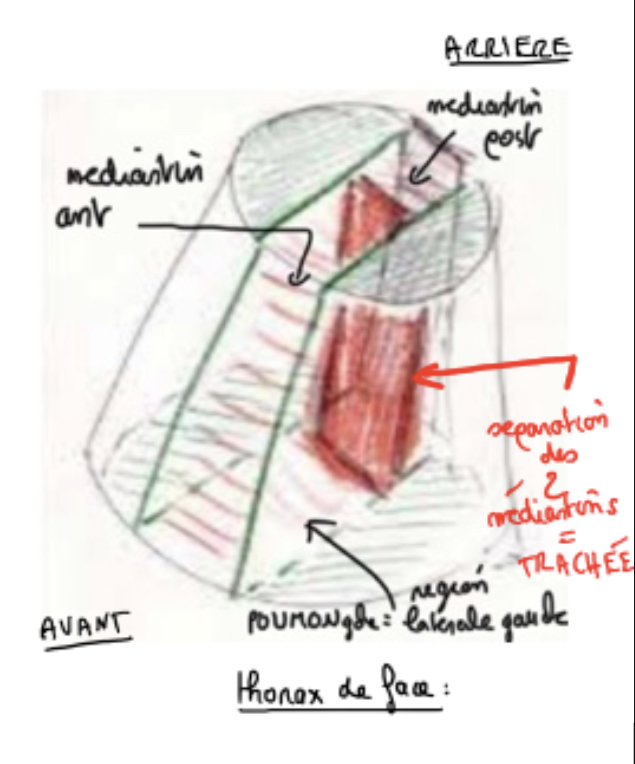 ARRIERE
mediastin
post
mediastin
ant
separation
des
2
médiastins
=
TRACHÉE
AVANT
région
POUMON gche = latérale gauche
thorax de face :